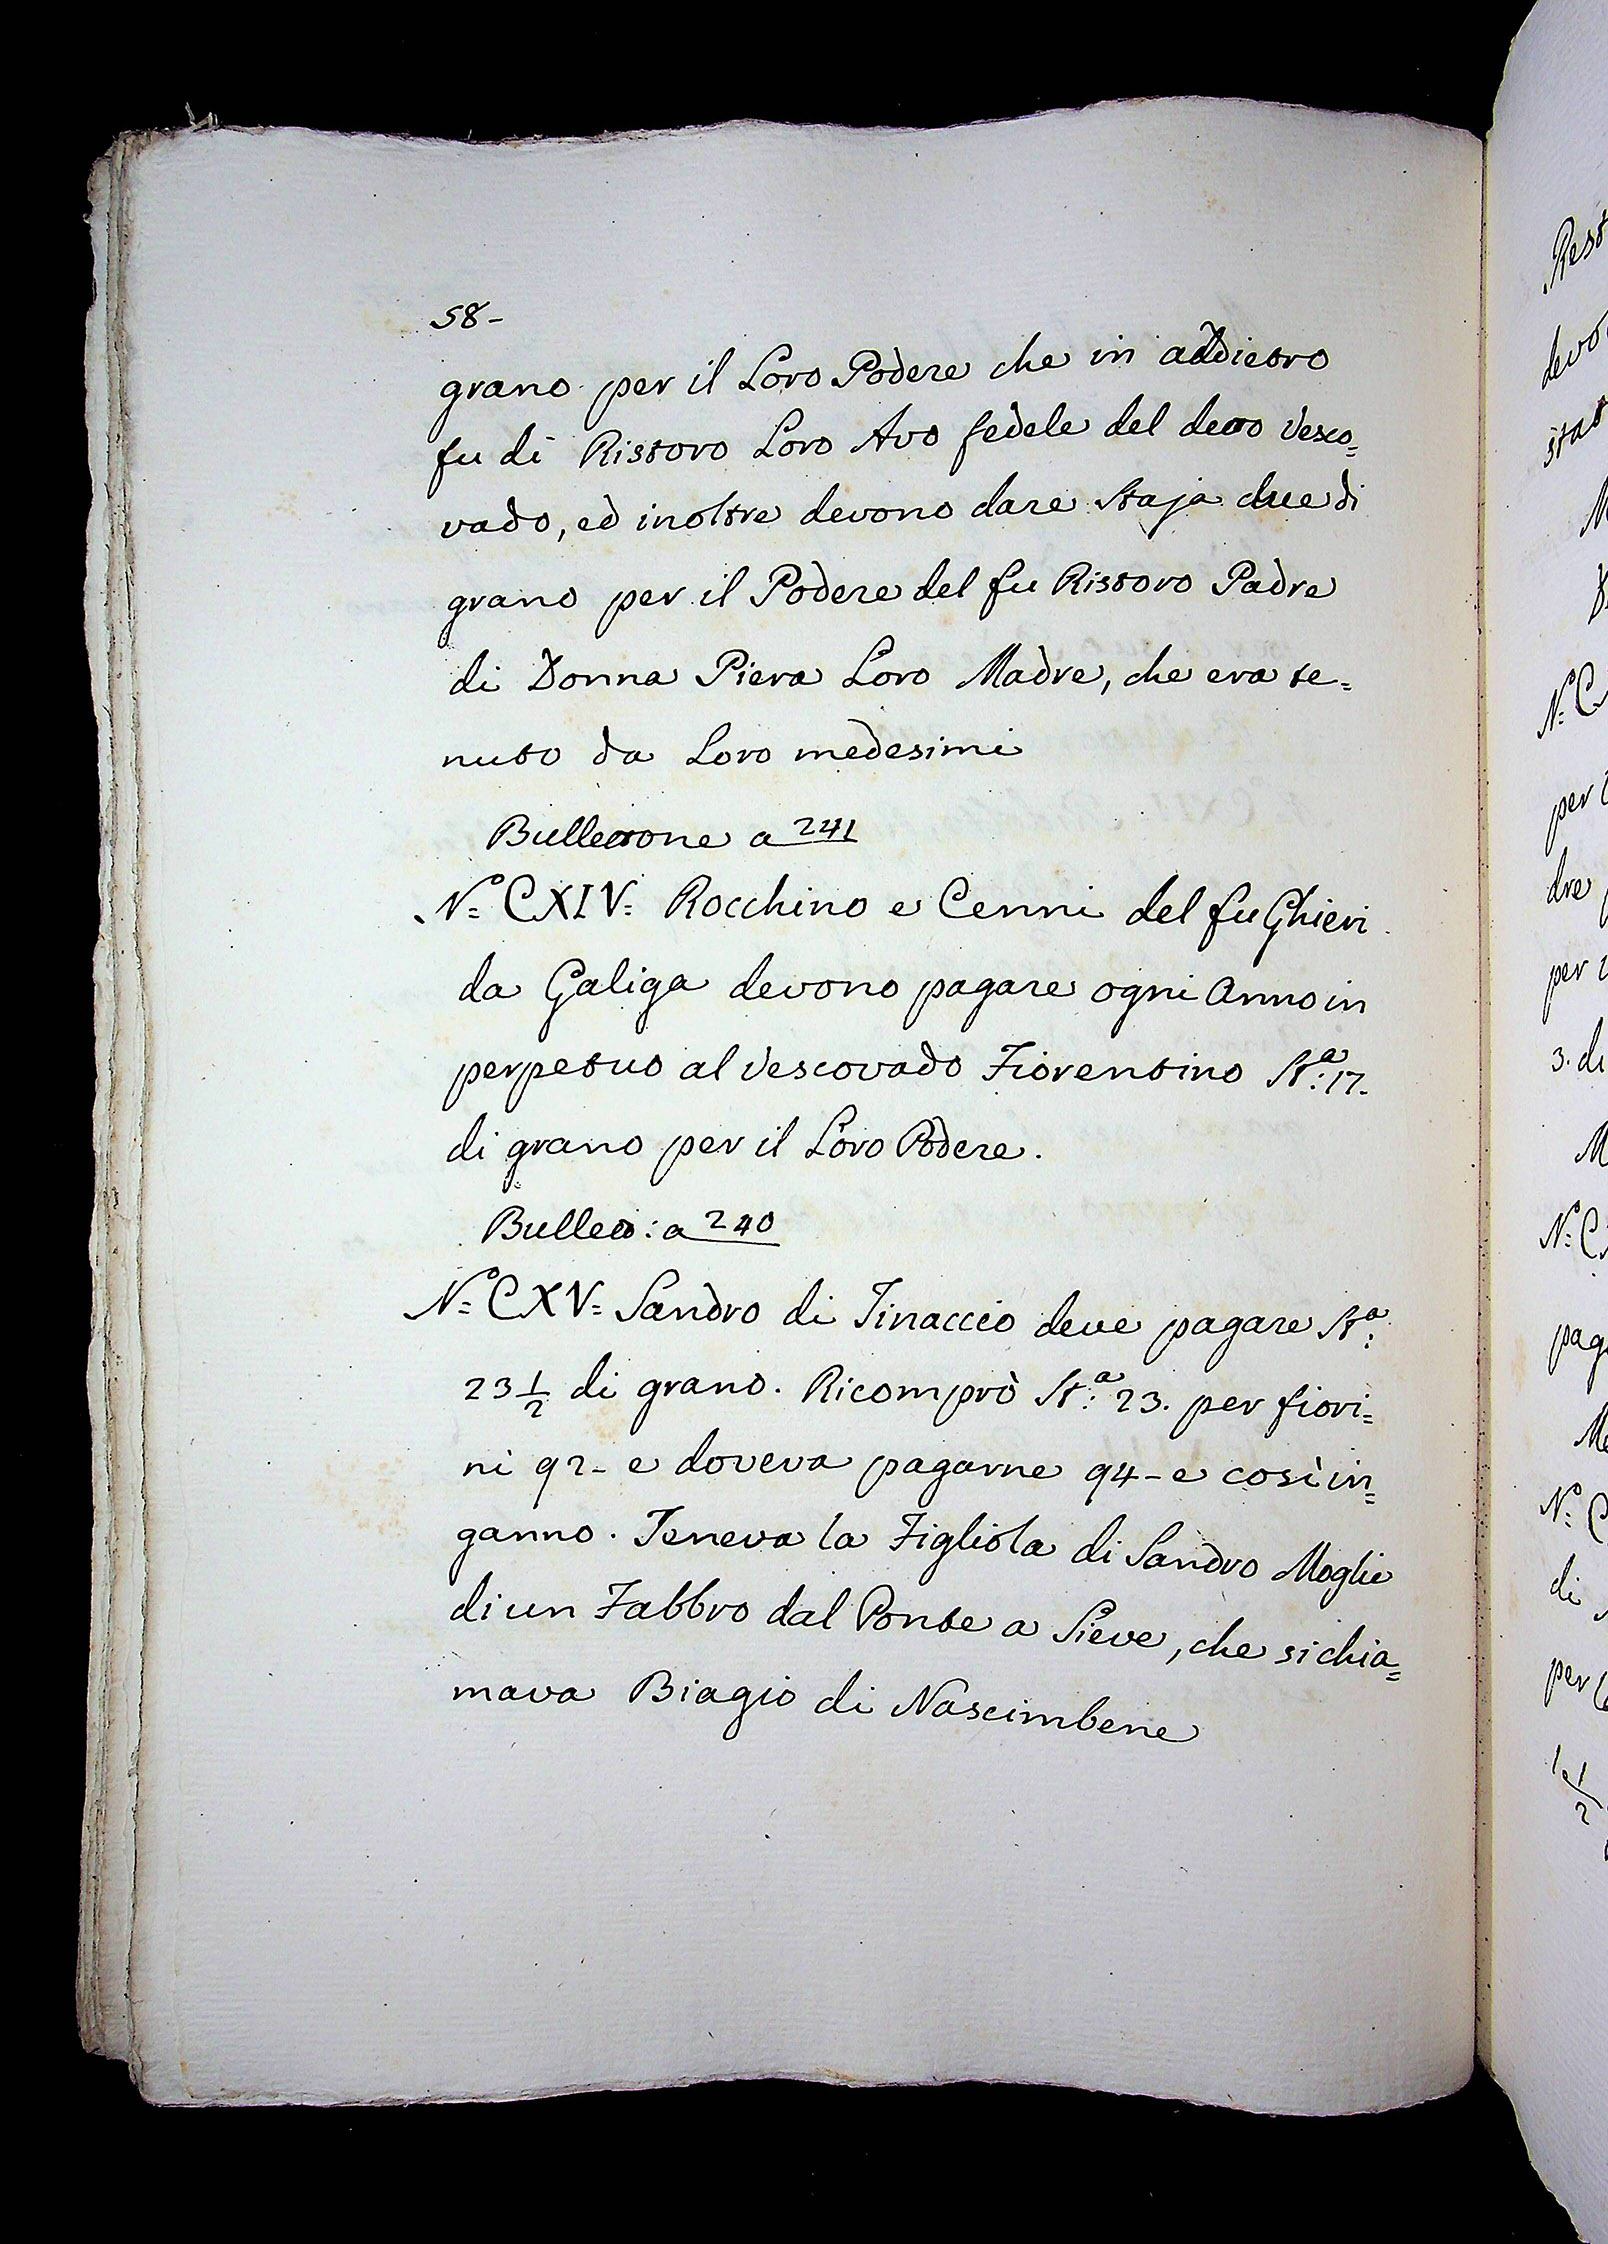 58-
grano per il Loro Podere che in addietro
fu di Ristoro Loro Avo fedele del detto Vesco=
vado, ed inoltre devono dare Staja due di
grano per il Podere del fu Ristoro Padre
di Donna Piera Loro Madre, che era te=
nuto da Loro medesimi
Bullettone a 241
N.º CXIV= Rocchino e Cenni del fu Ghieri
da Galiga devono pagare ogni Anno in
perpetuo al Vescovado Fiorentino St:ª 17.
di grano per il Loro Podere.
Bullett: a 240
N.º CXV= Sandro di Tinaccio deve pagare St:ª
23 1/2 di grano. Ricomprò St:ª 23. per fiori=
ni 92- e doveva pagarne 94- e così in=
ganno. Teneva la Figliola di Sandro Moglie
di un Fabbro dal Ponte a Sieve, che si chia=
mava Biagio di Nascimbene
Rest
devo
stat
M
N.º C
per
dre
per
3. di
M
N.º C
pag
M
N.º C
di
per
1 1/2